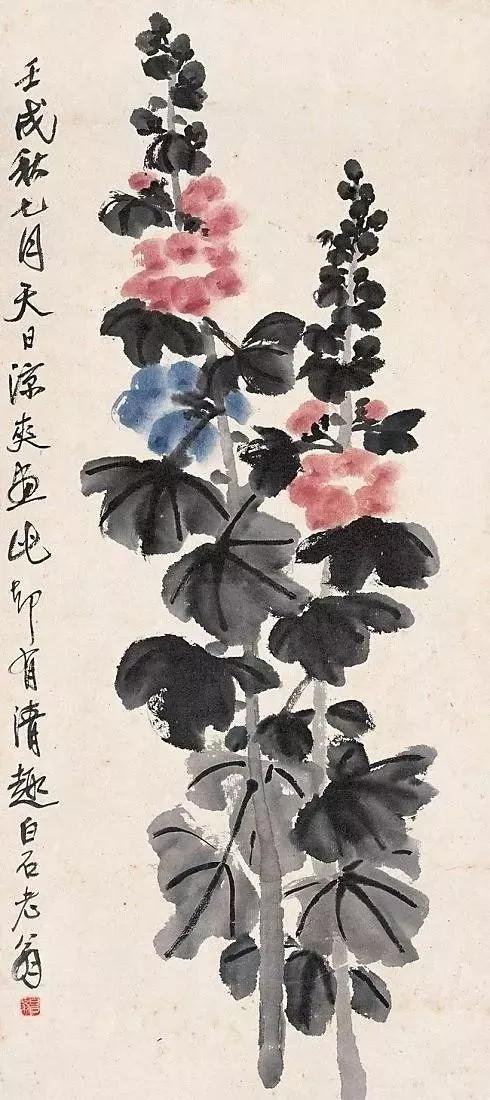 壬戌秋七月天日凉爽画此却有清趣白石老翁